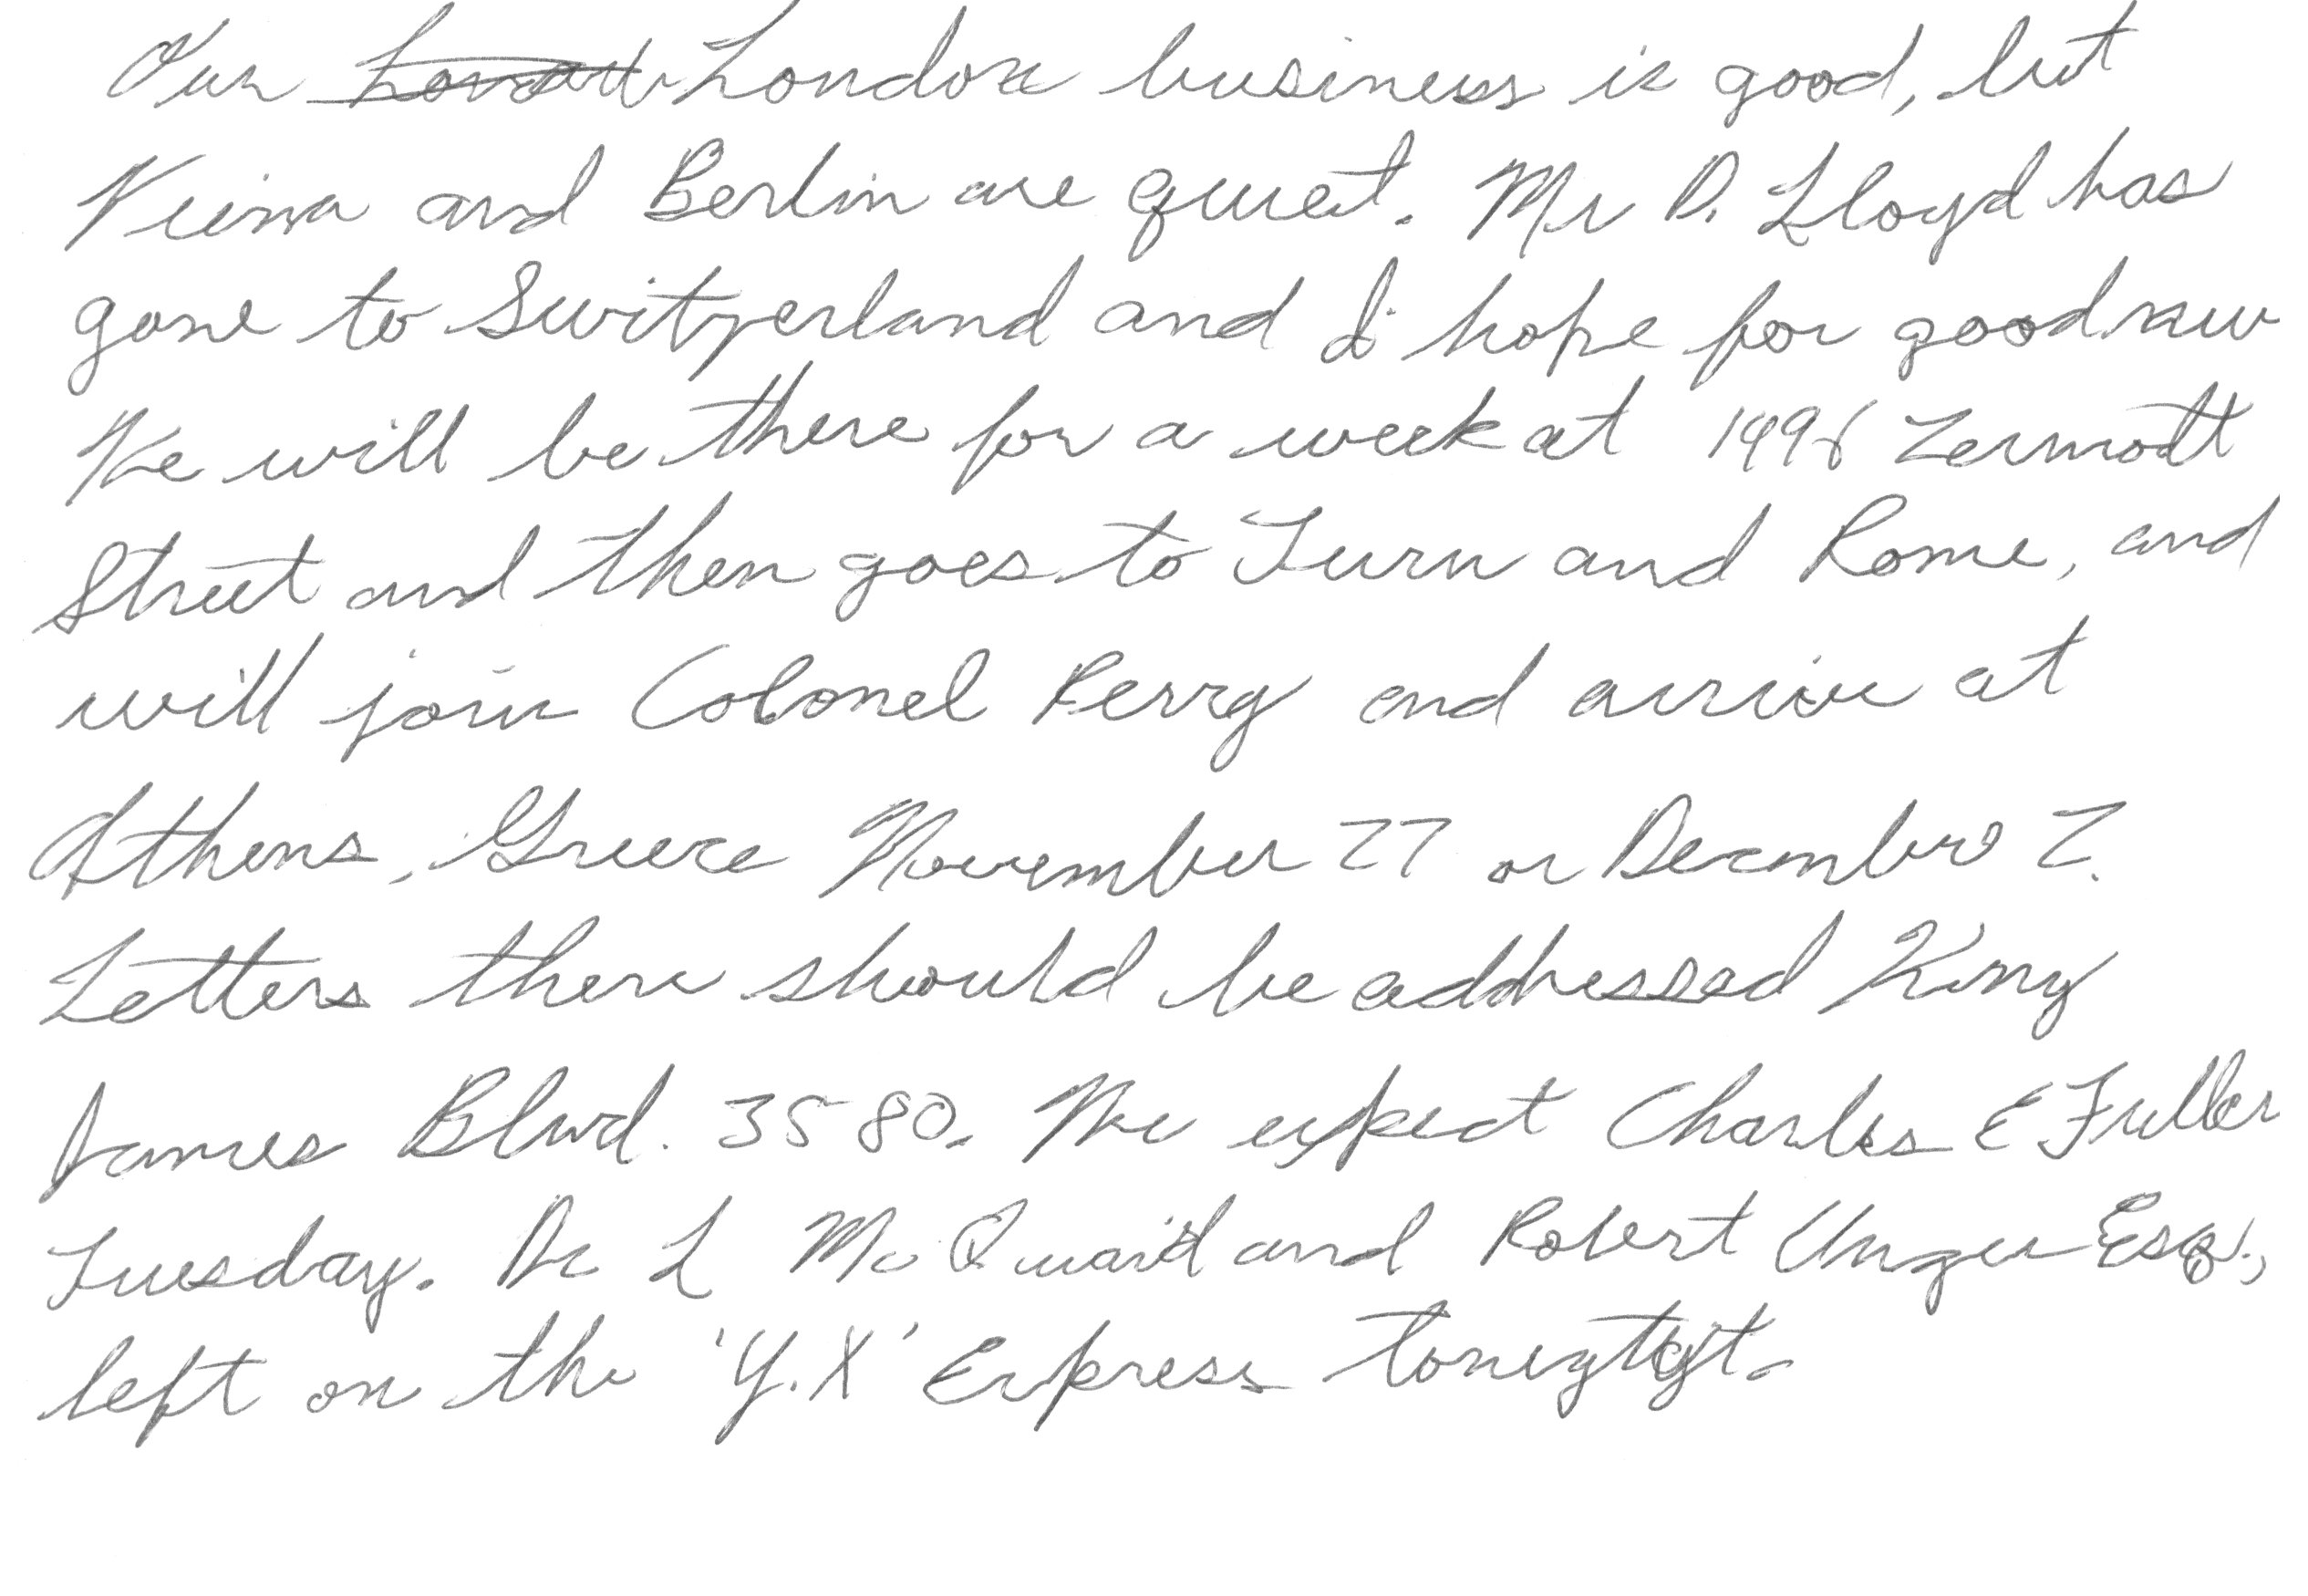 Our London business is good, but
Veinna and Berlin are quiet. Mr D. Lloyd has
gone to Switzerland and I hope for good new
He will be there for a week at 1496 Zermott
Street and then goes to Turn and Rome, and
will join Colonel Perry and arrive at
Athens, Greece November 27 or December 2.
Letters there should be addressed King
James Blvd. 3580. We expect Charles E Fuller
Tuesday. Dr L McQuaid and Robert Unger Esq.,
left on the 'Y.X' Express tonigtgt.